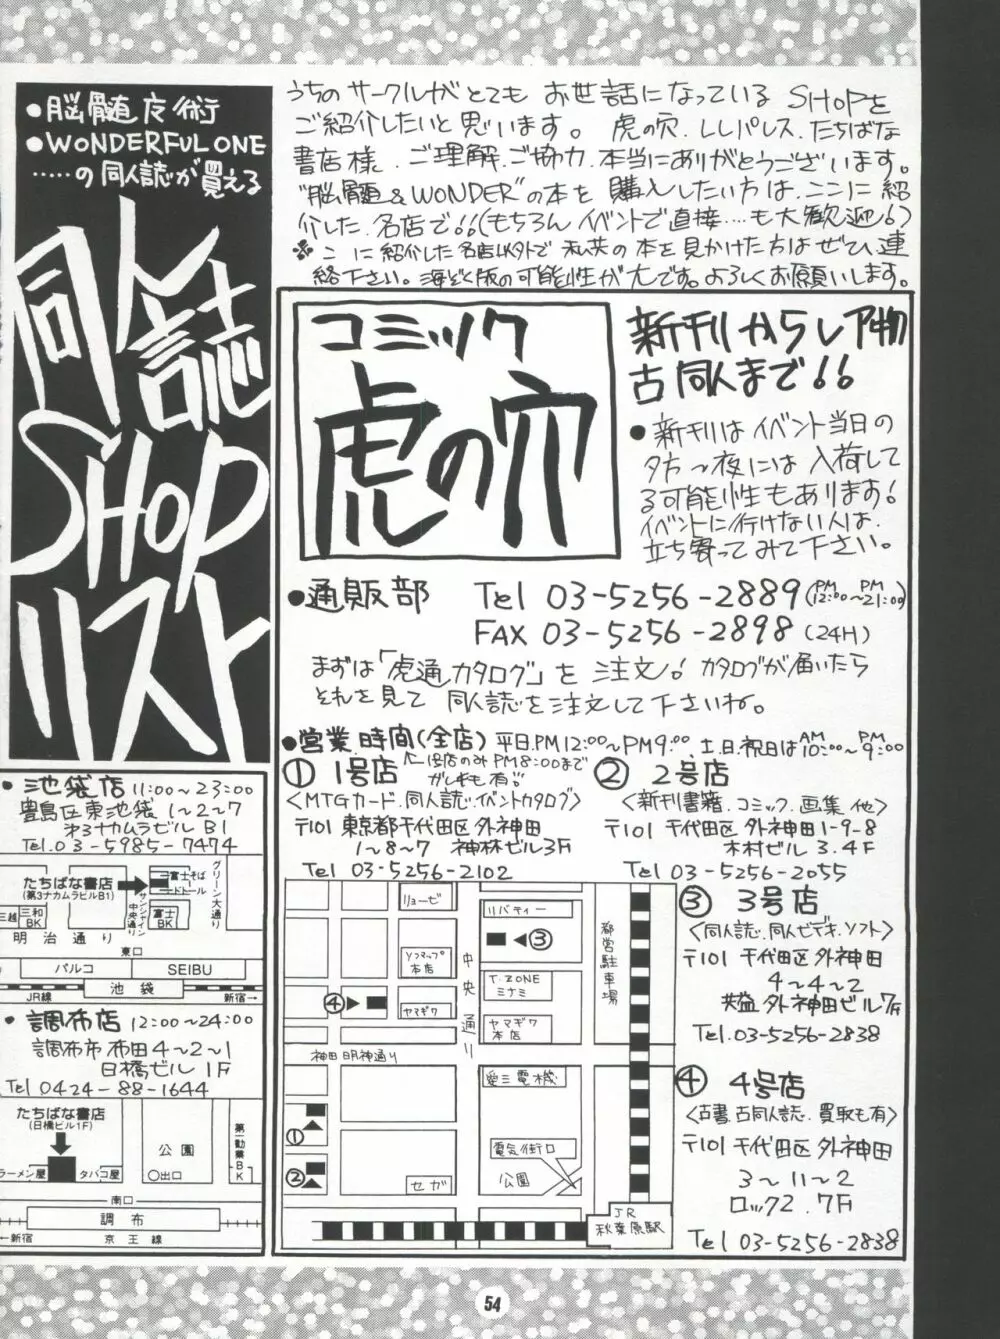 ●脳髄皮術
●WONDERFUL ONE
‥‥‥の同人誌が買える
同人誌
SHOP
リスト
うちのサークルがとても お世話になっている SHOPを
ご紹介したいと思います。 虎の穴.LLパレス.たちばな
書店様.ご理解.ご協力.本当にありがとうございます。
"脳髄&WONDER"の本を 購入したい方は.ここに紹
介した.名店で!!(もちろん イベントで直接‥‥も大歓迎!)
※ここに紹介した名店以外で 私共の本を見かけた方はぜひ連
絡下さい。海ぞく版の可能性が大です。よろしくお願いします。
コミック
虎の穴
新刊からレア物
古同人まで!!
●新刊はイベント当日の
夕方~夜には入荷して
る可能性もあります!
イベントに行けない人は.
立ち寄ってみて下さい。
●通販部 Tel 03-5256-2889(PM12:00~PM21:00)
FAX 03-5256-2898 (24H)
まずは「虎通カタログ」を 注文! カタログが届いたら
それを見て 同人誌を注文して下さいね。
●営業時間(全店)平日.PM12:00~PM9:00 土.日.祝日はAM10:00~PM9:00
① 1号店
〈MTGカード.同人誌.イベントカタログ〉
〒101 東京都千代田区外神田
1~8~7 神林ビル3F
Tel 03-5256-2102
② 2号店
〈新刊書籍.コミック.画集 他〉
〒101 千代田区外神田1-9-8
木村ビル 3.4F
Tel 03-5256-2055
③ 3号店
〈同人誌.同人ビデオ.ソフト〉
〒101 千代田区外神田
4~4~2
共益外神田ビル7F
Tel.03-5256-2838
④ 4号店
〈古書.古同人誌.買取も有〉
〒101 千代田区外神田
3~11~2
ロック2.7F
Tel 03-5256-2838
リョービ
リバティー
ソフマップ
本店
中央通り
③
T.ZONE
ミナミ
④
ヤマギワ
ヤマギワ
本店
都営駐車場
神田明神通り
愛三電機
①
②
セガ
電気街口
公園
JR
秋葉原駅
●池袋店 11:00~23:00
豊島区東池袋 1~2~7
オ3ナカムラビル B1
Tel.03-5985-7474
たちばな書店
(第3ナカムラビルB1)
富士そば
ドトール
グリーン大通り
三越
三和
BK
サンシャイン
中央通り
富士
BK
明治通り
東口
パルコ
SEIBU
JR線
池袋
新宿→
●調布店 12:00~24:00
調布市布田4~2~1
日橋ビル 1F
Tel 0424-88-1644
たちばな書店
(日橋ビル1F)
公園
第一勧業BK
ラーメン屋
タバコ屋
○出口
南口
調布
←新宿
京王線
54